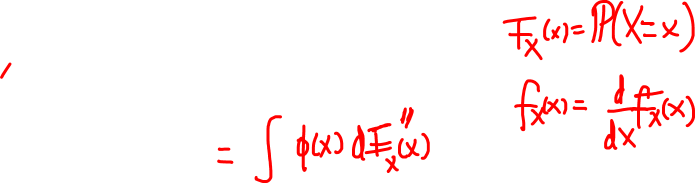 F_X(x) = ℙ(X = x)
f_X(x) = d/dx F_X(x)
= ∫ φ(x) d F_X(x) "